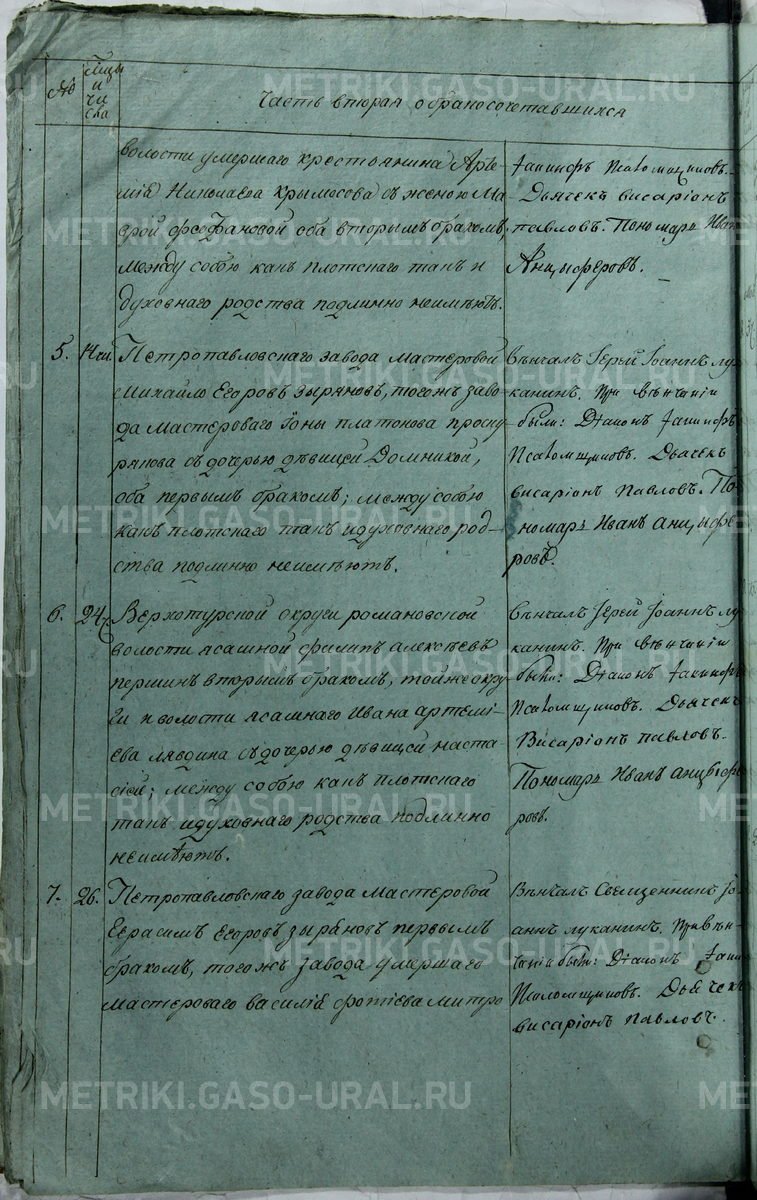 №
мѣсяцы и числа
Часть вторая о бракосочетавшихся
волости умершаго крестьянина Арте
мія Николаева Крымосова съ женою Ма
врой Феофановой оба вторымъ бракомъ,
между собою какъ плотскаго такъ и
духовнаго родства подлинно неимѣютъ.
Іакинфъ Псаломщиковъ.
Дьячекъ висаріонъ
павловъ. Пономарь Иванъ
Анцыферовъ.
5.
14 чи.
Петропавловскаго завода мастеровой
Михайло Егоровъ зыряновъ, тогожъ заво
да мастероваго Іоны платонова проску
рякова съ дочерью дѣвицей Домникой,
оба первымъ бракомъ; между собою
какъ плотскаго такъ идуховнаго род
ства подлинно неимѣютъ.
вѣнчалъ Іерей Іоаннъ лу
канинъ. При вѣнчаніи
были: Діаконъ Іакинфъ
Псаломщиковъ. Дьячекъ
висаріонъ Павловъ. По
номарь Иванъ анцыфе
ровъ.
6.
24.
Верхотурской округи романовской
волости ясашной филипъ алексѣевъ
першинъ вторымъ бракомъ, тойже окру
ги и волости ясашнаго Ивана артемі
ева лявдина съ дочерью дѣвицей наста
сіей; между собою какъ плотскаго
такъ идуховнаго родства подлинно
неимѣютъ.
вѣнчалъ Іерей Іоаннъ лу
канинъ. При вѣнчаніи
были: Діаконъ Іакинфъ
Псаломщиковъ. Дьячекъ
Висаріонъ павловъ.
Пономарь Иванъ анцыфе
ровъ.
7.
26.
Петропавловскаго завода Мастеровой
Герасимъ Егоровъ зыряновъ первымъ
бракомъ, тогожъ завода умершаго
мастероваго василія фотіева митро
Вѣнчалъ Священникъ Іо
аннъ луканинъ. При вѣн
чаніи были: Діаконъ Іакин
Псаломщиковъ. Дьячекъ
висаріонъ Павловъ.
METRIKI.GASO-URAL.RU